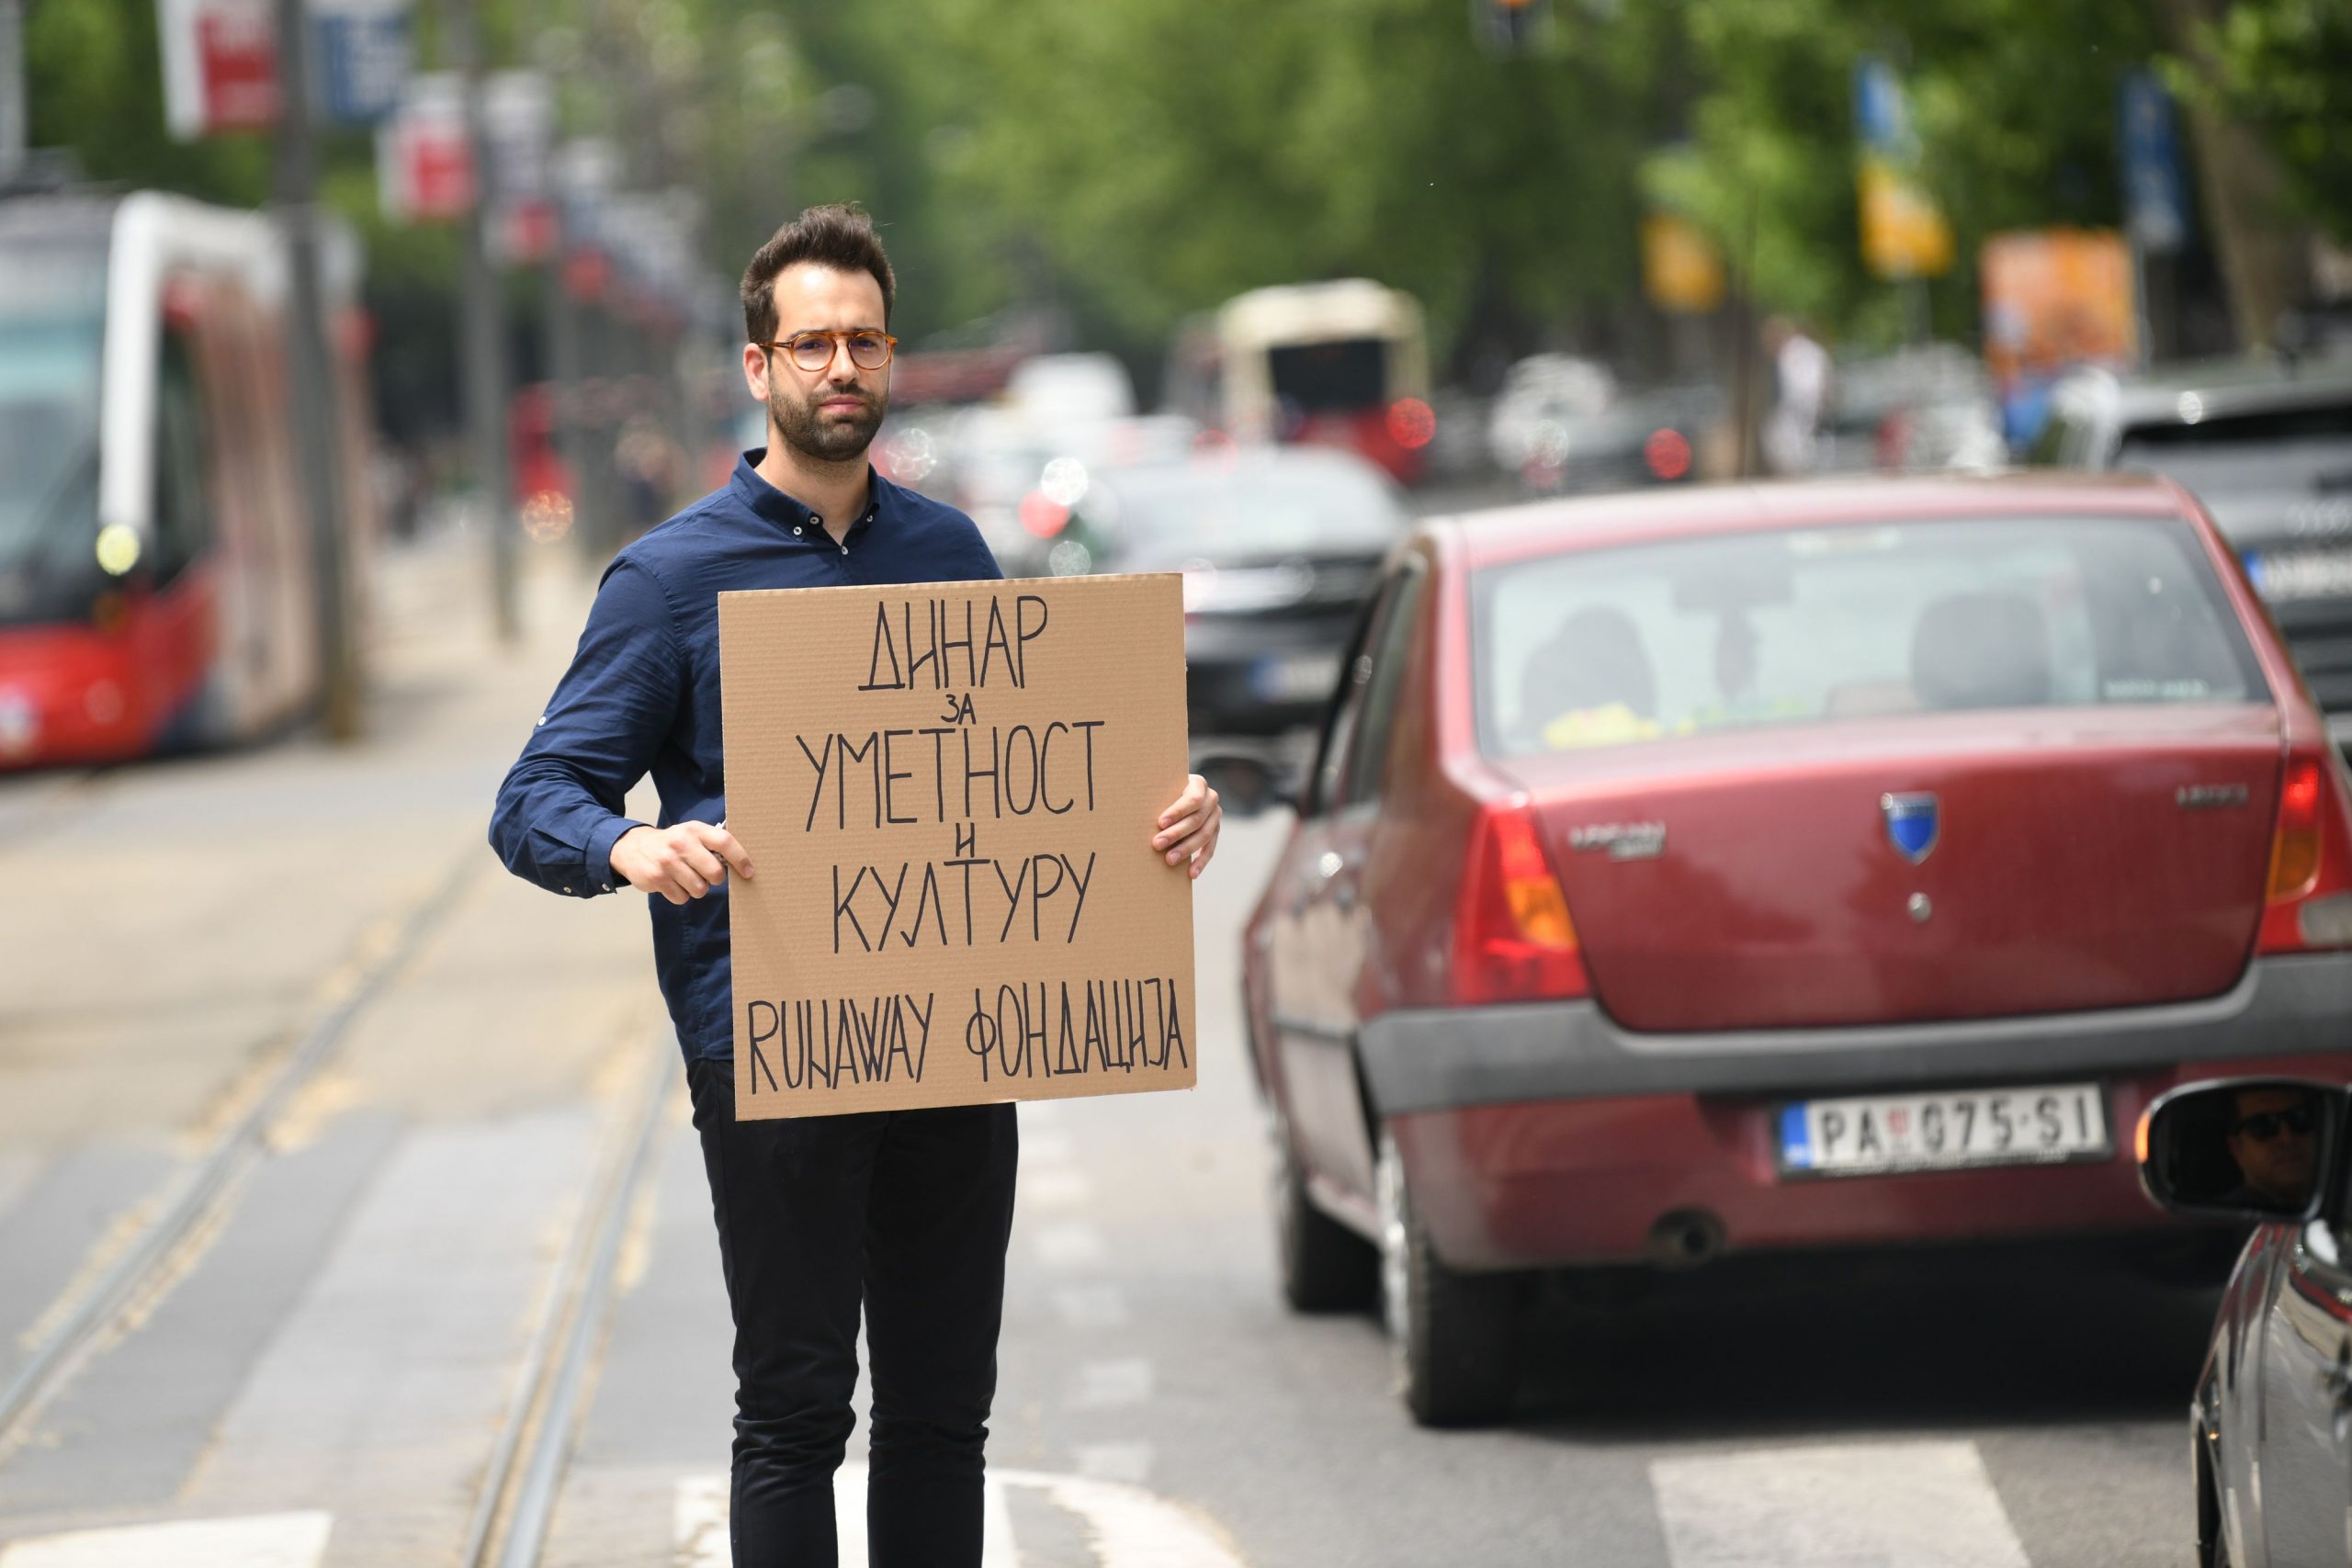 ДИНАР
ЗА
УМЕТНОСТ
И
КУЛТУРУ
RUNAWAY ФОНДАЦИЈА
LOGAN
PA 075-SI